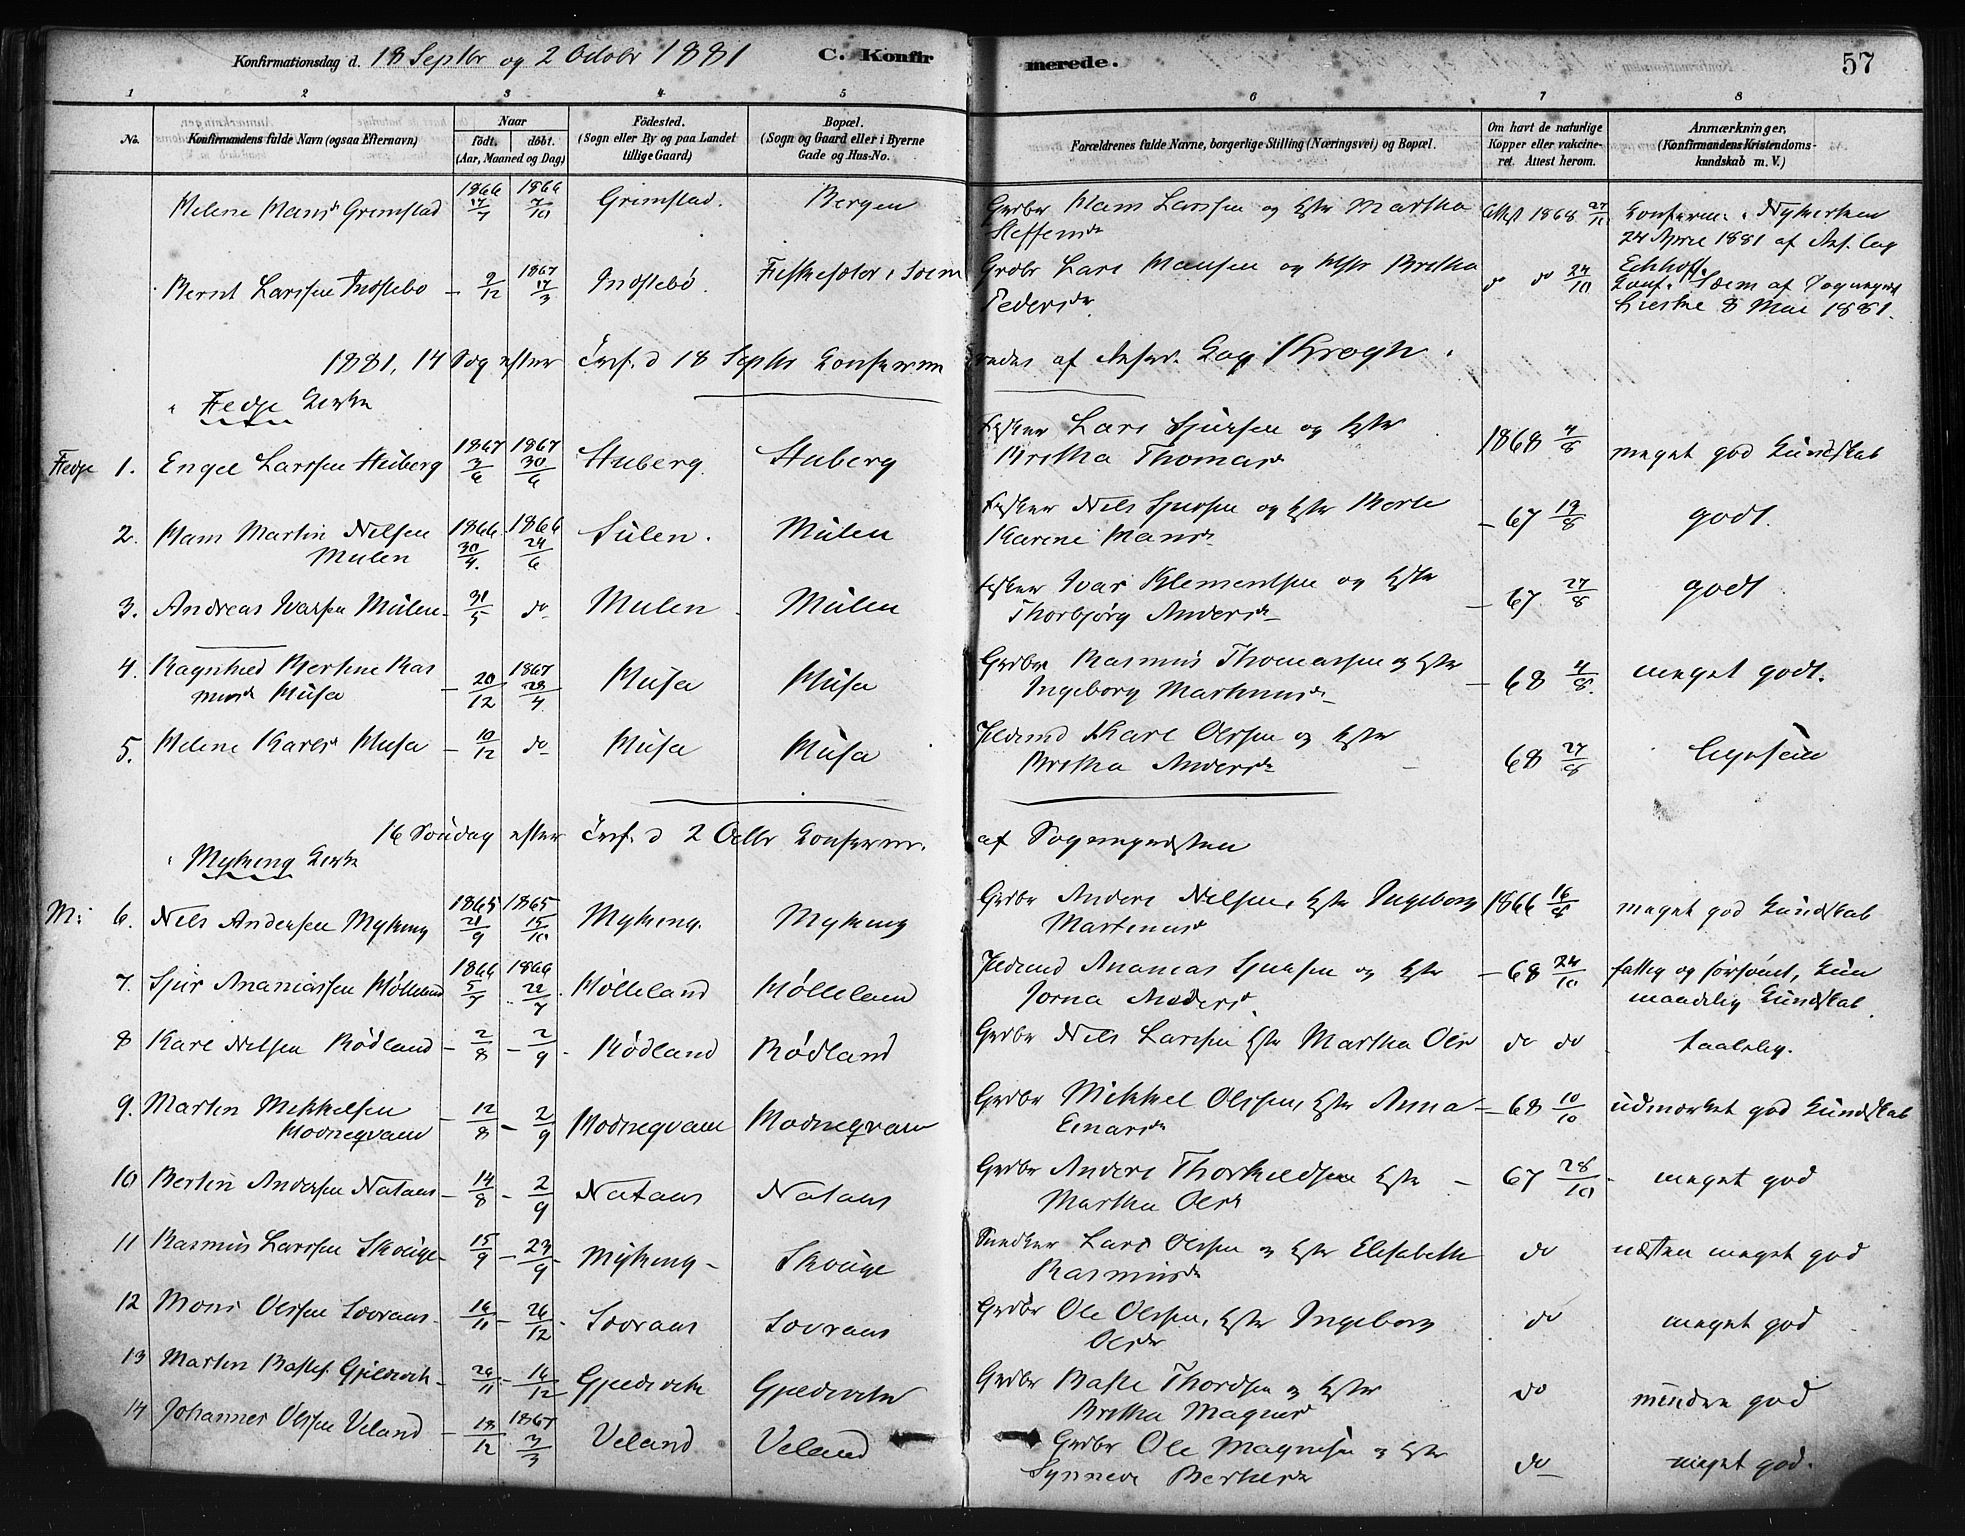 Konfirmationsdag d. 18 Septbr og 2 Octobr 1881 C. Konfirmerede. 57
1 2 3 4 5 6 7 8
No. Konfirmandens fulde Navn (ogsaa Efternavn) Naar født. døbt. (Aar, Maaned og Dag) Fødested. (Sogn eller By og paa Landet tillige Gaard) Bopæl. (Sogn og Gaard eller i Byerne Gade og Hus-No. Forældrenes fulde Navne, borgerlige Stilling (Næringsvei) og Bopæl. Om havt de naturlige Kopper eller vakcineret. Attest herom. Anmærkninger, (Konfirmandens Kristendomskundskab m. V.)
Helene Hansd Grimstad 1866 1866 7/10 Grimstad. Bergen Grdbr Hans Larssen og Hstr Martha Steffensdr Attest 1868 Konfirm. i Nykirken
24 April 1881 af
Bernt Larssen Indstebø - 9/12 1867 17/3 Indstebø. Grdbr Lars Hansen og Hstr Britha Pedersdr do do 24/10 Konf. i Soem af Sognepr
8 Mai 1881.
1881, 14 Søg efter Tref. d 18 Septbr Konfirmeredes af Krogh.
i Fedje Kirke
Fedje 1. Engel Larssen Stuberg 1867 3/6 1867 30/6 Stuberg. Stuberg Fisker Lars Sjursen og Hstr Britha Thomasdr 1868 4/8 meget god Kundskab
2. Hans Martin Nilsen Mulen 1866 30/4. 1866 24/6 Sulen. Mulen Fisker Nils Sjursen og Hstr Karine Hansdr - 67 19/8 godt.
3. Andreas Ivarsen Mulen - 31/5 do Mulen Mulen Fisker Ivar Klementsen og Hstr Thorbjørg Andersdr - 67 27/8 godt
4. Ragnhild Bertine Rasmusdr Husa - 20/12 1867 28/4 Husa Husa Grdbr Rasmus Thomassen og Hstr Ingeborg Martinusdr - 68 4/8. meget godt.
5. Helene Karlsd Husa - 10/12 do Husa Husa Karl Olssen og Hstr Britha Andersdr 68 27/8 ligesaa
16 Søndag efter Tref. d 2 Octbr Konfirm. af Sognepresten
i Myking Kirke
M: 6. Nils Andersen Myking 1865 21/9 1865 15/10 Myking. Myking Grdbr Anders Nilsen, Hstr Ingeborg Martinusd 1866 16/8 meget god Kundskab
7. Sjur Ananiassen Hølleland 1866 5/7 1866 22/7 Hølleland Hølleland Ananias Sjursen og Hstr Jorna Andersd. - 68 24/10 fattig og forsømt, kun
maadelig Kundskab
8 Karl Nilsen Rødland - 2/8 - 2/9 - Rødland Rødland Grdbr Nils Larssen Hstr Martha Olsd do do taalelig.
9. Martin Mikkelsen Hodneqvam - 12/8 - 2/9 Hodneqvam Hodneqvam Grdbr Mikkel Olssen, Hstr Anna Einarsdr - 68 10/10 udmærket god Kundskab
10 Bertin Andersen Nataas - 14/8 - 2/9 Nataas Nataas Grdbr Anders Thorkildsen Hstr Martha Olsd - 67 28/10 - meget god
11 Rasmus Larssen Skouge - 15/9 - 23/9 - Myking - Skouge Snedker Lars Olssen og Hstr Elisabeth Rasmusdr do næsten meget god
12 Mons Olssen Sævraas - 16/11 - 26/12 - Sævraas Sævraas Grdbr Ole Olssen, Hstr Ingeborg Olsdr do meget god
13 Martin Bastes. Gjeldvik - 26/11 - 16/12 Gjeldvik Gjeldvik Grdbr Baste Thordsen og Hstr Britha Magnesd do mindre god
14 Johannes Olssen Veland - 18/12 1867 3/3 Veland Veland Grdbr Ole Magnesen og Hstr Synneva do meget god.